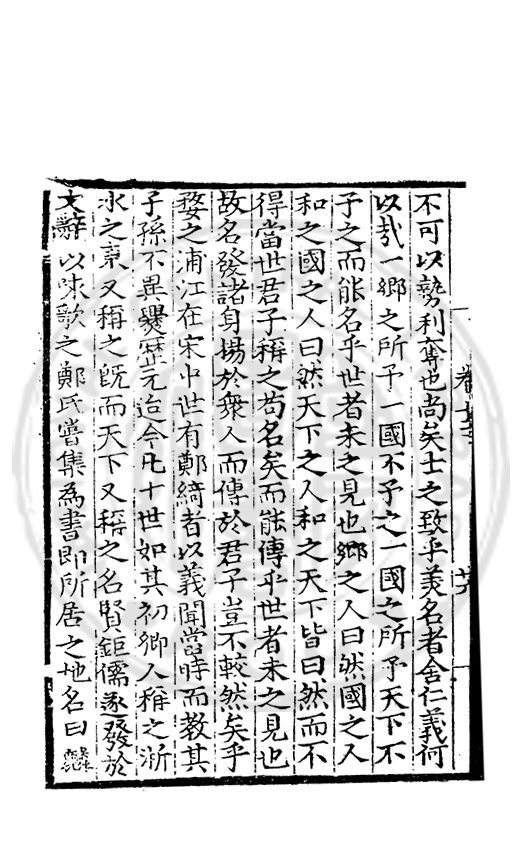 不可以勢利奪也尚矣士之致乎美名者舍仁義何
以哉一鄉之所予一國不予之一國之所予天下不
予之而能名乎世者未之見也鄉之人曰然國之人
和之國之人曰然天下之人和之天下皆曰然而不
得當世君子稱之苟名矣而能傳乎世者未之見也
故名發諸身揚於衆人而傳於君子豈不較然矣乎
婺之浦江在宋中世有鄭綺者以義聞當時而教其
子孫不異爨歷元迨今凡十世如其初鄉人稱之浙
水之東又稱之既而天下又稱之名賢鉅儒遂發於
文辭以咏歌之鄭氏嘗集為書即所居之地名曰麟